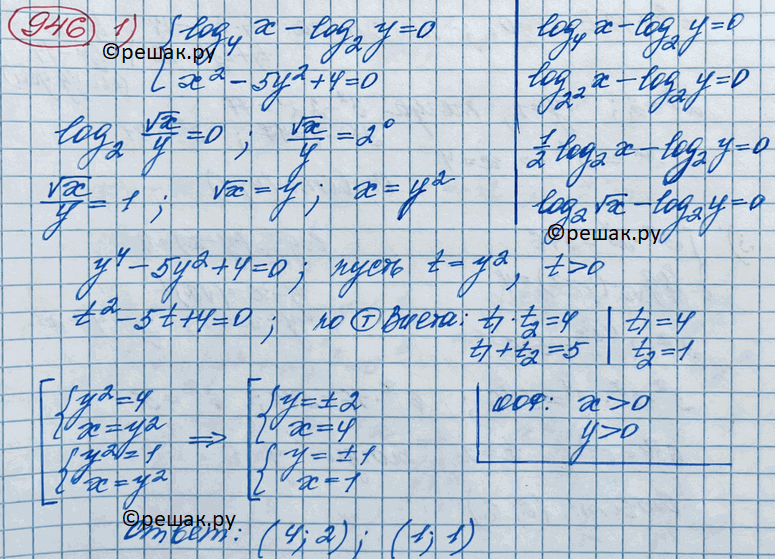 946 1) { log₄ x − log₂ y = 0
x² − 5y² + 4 = 0
©решак.ру
log₂ √x/y = 0 ; √x/y = 2⁰
√x/y = 1 ; √x = y ; x = y²
log₄ x − log₂ y = 0
log₂² x − log₂ y = 0
1/2 log₂ x − log₂ y = 0
log₂ √x − log₂ y = 0
©решак.ру
y⁴ − 5y² + 4 = 0 ; пусть t = y², t > 0
t² − 5t + 4 = 0 ; по Ⓣ Виета: t₁ · t₂ = 4 | t₁ = 4
t₁ + t₂ = 5 | t₂ = 1
[ { y² = 4
x = y²
{ y² = 1
x = y²
⇒ [ { y = ±2
x = 4
{ y = ±1
x = 1
ООФ: x > 0
y > 0
©решак.ру
Ответ: (4; 2) ; (1; 1)